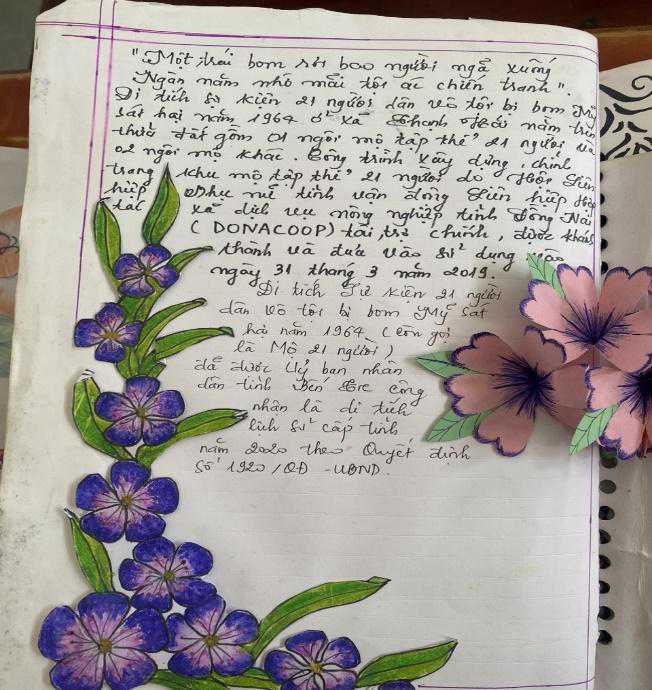 "Một trái bom rơi bao người ngã xuống
Ngàn năm nhớ mãi tội ác chiến tranh".
Di tích sự kiện 21 người dân vô tội bị bom Mỹ
sát hại năm 1964 ở xã Thạnh Hải nằm trên
thửa đất gồm 01 ngôi mộ tập thể 21 người và
02 ngôi mộ khác. Công trình xây dựng, chỉnh
trang khu mộ tập thể 21 người do Hội Liên
hiệp Phụ nữ tỉnh vận động Liên hiệp Hợp
tác xã dịch vụ nông nghiệp tỉnh Đồng Nai
(DONACOOP) tài trợ chính, được khánh
thành và đưa vào sử dụng vào
ngày 31 tháng 3 năm 2019.
Di tích Sự kiện 21 người
dân vô tội bị bom Mỹ sát
hại năm 1964 (còn gọi
là Mộ 21 người)
đã được Uỷ ban nhân
dân tỉnh Bến Tre công
nhận là di tích
lịch sử cấp tỉnh
năm 2020 theo Quyết định
số 1920/QĐ-UBND.